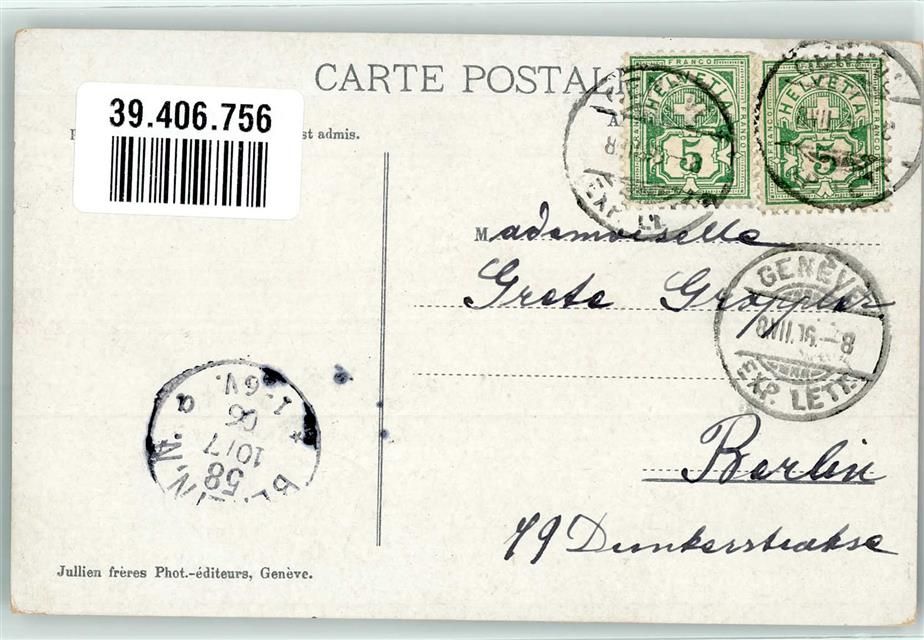 CARTE POSTALE
39.406.756
st admis.
FRANCO
HELVETIA
5
FRANCO
HELVETIA
5
EXP. LETT.
Mademoiselle
Grete Grappler
GENÈVE
8 VII. 06.–8
EXP. LETT.
Berlin
79 Dunkerstrakse
BERLIN N.
58
10/7
06
1-6V.
a
Jullien frères Phot.-éditeurs, Genève.